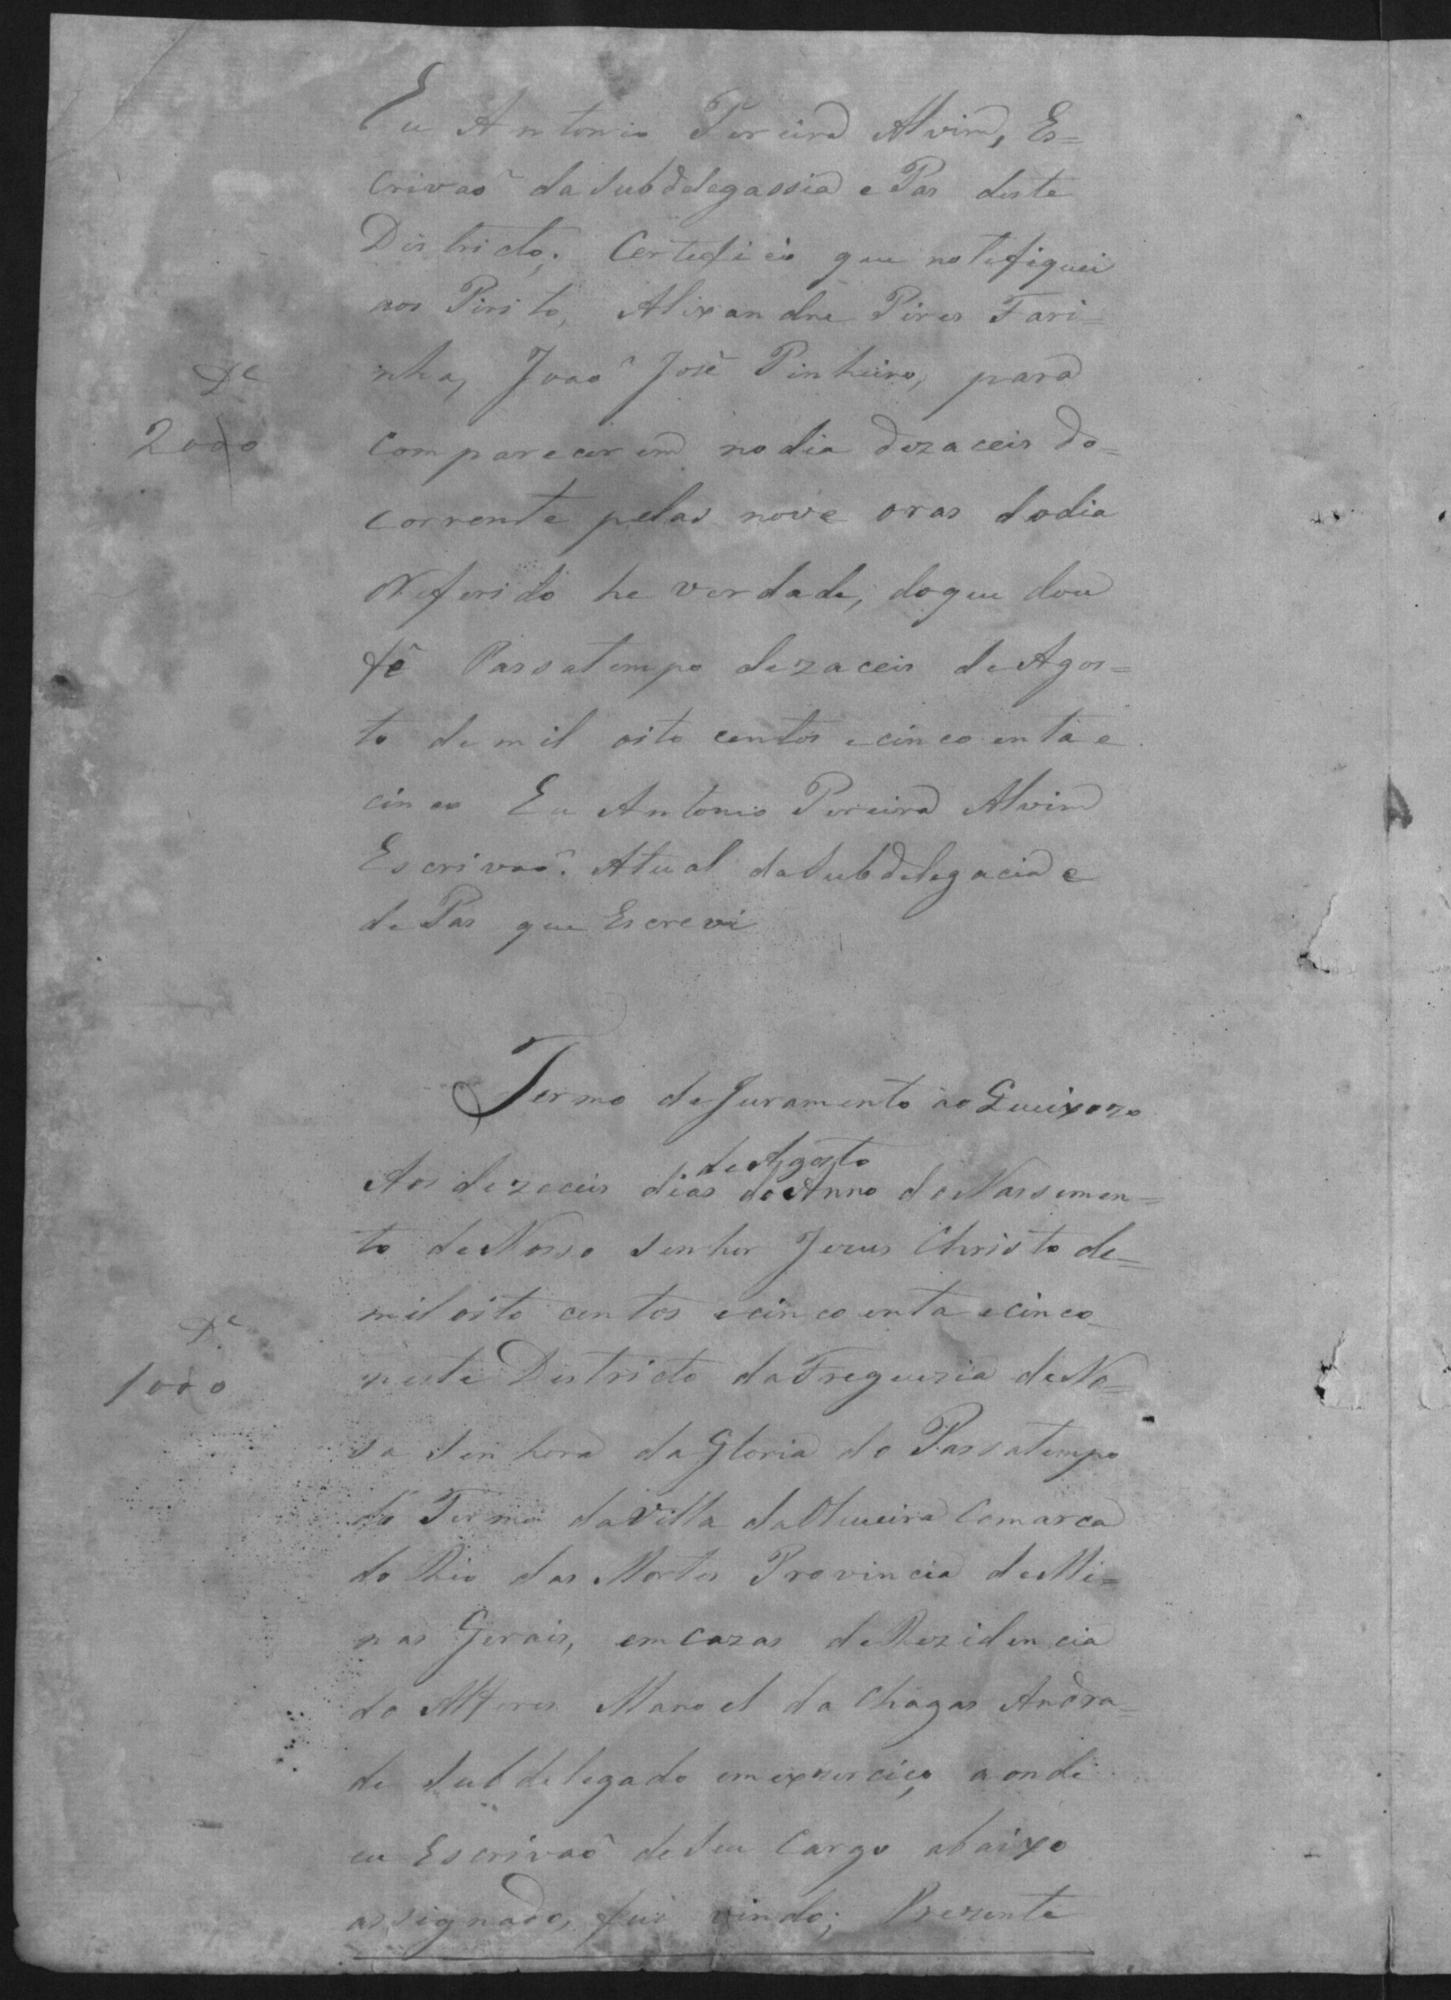 Eu Antonio Pereira Alvim, Es=
crivaõ da Subdelegassia e Pas deste
Districto; Certefico que notefiquei
aos Pirito, Alixandre Pires Fari=
nha, Joaõ José Pinheiro, para
De
2000
comparecerem no dia dezaceis do=
corrente pelas nove oras do dia
Referido he verdade, do que dou
fé Passatempo dezaceis de Agos=
to de mil oito centos e cincoenta e
cinco Eu Antonio Pereira Alvim
Escrivaõ Atual da Subdelegacia e
de Pas que Escrevi
Termo de Juramento ao Queixozo
de Agosto
Aos dezaceis dias do Anno do Nassemen=
to de Nosso Senhor Jezus Christo de=
mil oito centos e cincoenta e cinco
De
1000
neste Districto da Freguezia de No=
sa Senhora da Gloria do Passatempo
do Termo da Villa da Oliveira Comarca
do Rio das Mortes Provincia de Mi=
nas Gerais, em cazas de Rezidencia
do Alferes Manoel da Chagas Andra=
de Subdelegado em exzercicio aonde
eu Escrivaõ de Seu Cargo abaixo
assignado, fui vindo; Prezente